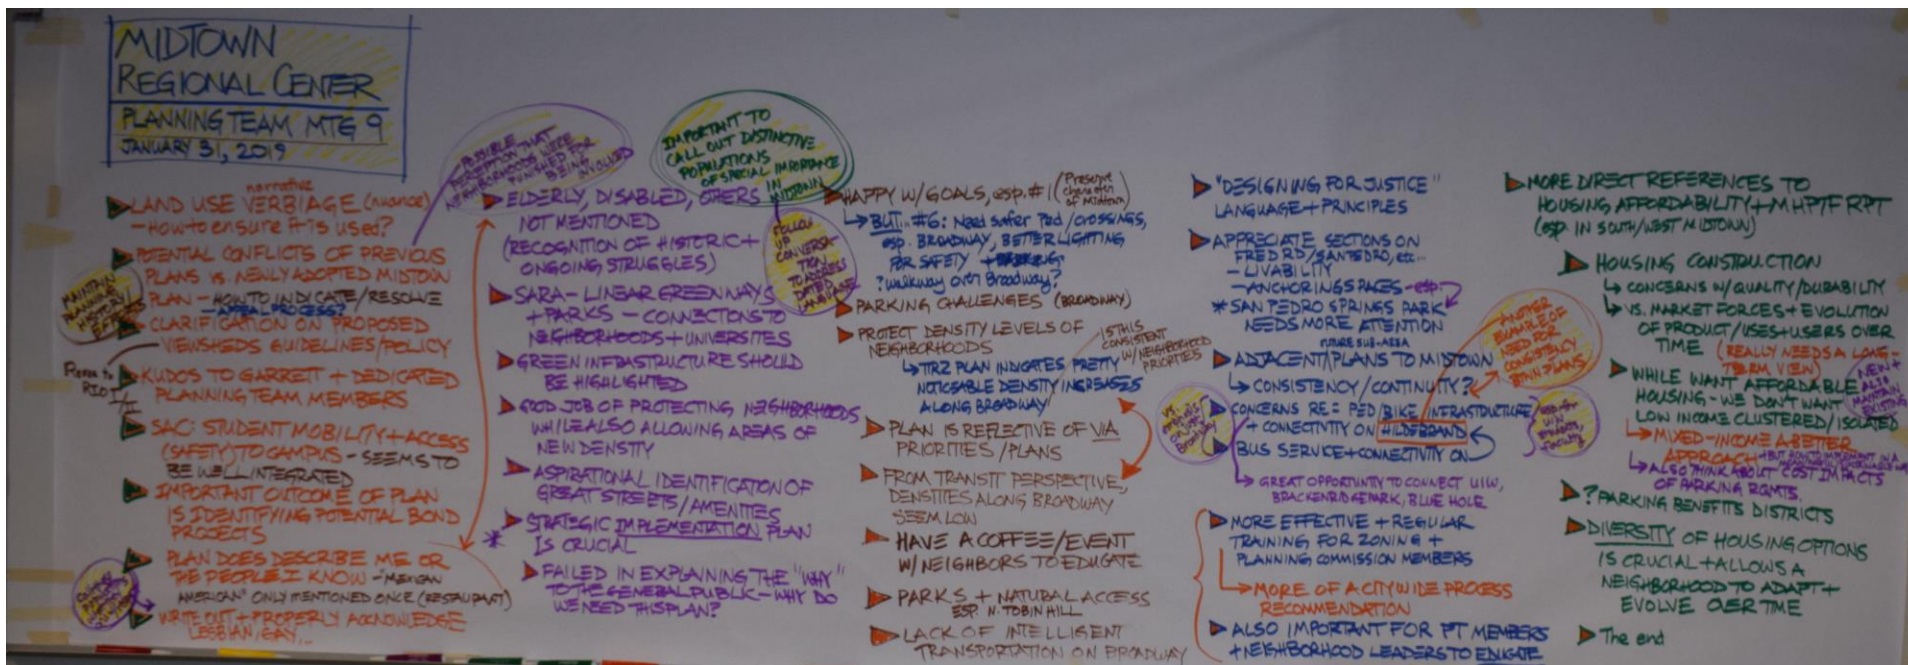 MIDTOWN
REGIONAL CENTER
PLANNING TEAM MTG 9
JANUARY 31, 2019
narrative
LAND USE VERBIAGE (nuance)
- How to ensure it is used?
POTENTIAL CONFLICTS OF PREVIOUS
PLANS vs. NEWLY ADOPTED MIDTOWN
PLAN - HOW TO INDICATE/RESOLVE
- APPEAL PROCESS?
MAINTAIN
PLANNING
HISTORY/
EFFORTS
CLARIFICATION ON PROPOSED
VIEWSHEDS GUIDELINES/POLICY
Refer to
RIO 1
KUDOS TO GARRETT + DEDICATED
PLANNING TEAM MEMBERS
SAC: STUDENT MOBILITY + ACCESS
(SAFETY) TO CAMPUS - SEEMS TO
BE WELL INTEGRATED
IMPORTANT OUTCOME OF PLAN
IS IDENTIFYING POTENTIAL BOND
PROJECTS
PLAN DOES DESCRIBE ME OR
THE PEOPLE I KNOW - "MEXICAN
AMERICAN" ONLY MENTIONED ONCE (RESTAURANT)
WRITE OUT + PROPERLY ACKNOWLEDGE
LESBIAN, GAY, ...
POSSIBLE
PERCEPTION THAT
NEIGHBORHOODS WERE
PUNISHED FOR
BEING
INVOLVED
IMPORTANT TO
CALL OUT DISTINCTIVE
POPULATIONS
OF SPECIAL IMPORTANCE
IN
MIDTOWN
ELDERLY, DISABLED, OTHERS
NOT MENTIONED
(RECOGNITION OF HISTORIC +
ONGOING STRUGGLES)
FOLLOW
UP
CONVERSA-
TION
TO ADDRESS
DATED
LANGUAGE
SARA - LINEAR GREENWAYS
+ PARKS - CONNECTIONS TO
NEIGHBORHOODS + UNIVERSITIES
GREEN INFRASTRUCTURE SHOULD
BE HIGHLIGHTED
GOOD JOB OF PROTECTING NEIGHBORHOODS
WHILE ALSO ALLOWING AREAS OF
NEW DENSITY
ASPIRATIONAL IDENTIFICATION OF
GREAT STREETS/AMENITIES
* STRATEGIC IMPLEMENTATION PLAN
IS CRUCIAL
FAILED IN EXPLAINING THE "WHY"
TO THE GENERAL PUBLIC - WHY DO
WE NEED THIS PLAN?
HAPPY W/ GOALS, esp. #1 (Preserve
character
of Midtown)
BUT... #6: Need safer Ped/crossings,
esp. BROADWAY, BETTER LIGHTING
FOR SAFETY
? walkway over Broadway?
PARKING CHALLENGES (BROADWAY)
PROTECT DENSITY LEVELS OF
NEIGHBORHOODS
IS THIS
CONSISTENT
W/ NEIGHBORHOOD
PRIORITIES
TIRZ PLAN INDICATES PRETTY
NOTICEABLE DENSITY INCREASES
ALONG BROADWAY
PLAN IS REFLECTIVE OF VIA
PRIORITIES/PLANS
FROM TRANSIT PERSPECTIVE,
DENSITIES ALONG BROADWAY
SEEM LOW
HAVE A COFFEE/EVENT
W/ NEIGHBORS TO EDUCATE
PARKS + NATURAL ACCESS
ESP. N. TOBIN HILL
LACK OF INTELLIGENT
TRANSPORTATION ON BROADWAY
"DESIGNING FOR JUSTICE"
LANGUAGE + PRINCIPLES
APPRECIATE SECTIONS ON
FRED RD/SAN PEDRO, etc...
- LIVABILITY
- ANCHORING SPACES - esp.
* SAN PEDRO SPRINGS PARK
NEEDS MORE ATTENTION
FUTURE SUB-AREA
ADJACENT/PLANS TO MIDTOWN
CONSISTENCY/CONTINUITY?
ANOTHER
EXAMPLE OF
NEED FOR
CONSISTENCY
BTWN PLANS
CONCERNS RE: PED/BIKE INFRASTRUCTURE
+ CONNECTIVITY ON HILDEBRAND
BUS SERVICE + CONNECTIVITY ON
GREAT OPPORTUNITY TO CONNECT UIW,
BRACKENRIDGE PARK, BLUE HOLE
MORE EFFECTIVE + REGULAR
TRAINING FOR ZONING +
PLANNING COMMISSION MEMBERS
MORE OF A CITYWIDE PROCESS
RECOMMENDATION
ALSO IMPORTANT FOR PT MEMBERS
+ NEIGHBORHOOD LEADERS TO EDUCATE
MORE DIRECT REFERENCES TO
HOUSING AFFORDABILITY + MHPTF RPT
(esp. IN SOUTH/WEST MIDTOWN)
HOUSING CONSTRUCTION
CONCERNS W/ QUALITY/DURABILITY
VS. MARKET FORCES + EVOLUTION
OF PRODUCT/USES + USERS OVER
TIME (REALLY NEEDS A LONG-
TERM VIEW)
WHILE WANT AFFORDABLE
HOUSING - WE DON'T WANT
LOW INCOME CLUSTERED/ISOLATED
NEW +
ALSO
MAINTAIN
EXISTING
MIXED-INCOME A BETTER
APPROACH
ALSO THINK ABOUT COST IMPACTS
OF PARKING RQMTS.
? PARKING BENEFITS DISTRICTS
DIVERSITY OF HOUSING OPTIONS
IS CRUCIAL + ALLOWS A
NEIGHBORHOOD TO ADAPT +
EVOLVE OVER TIME
The end